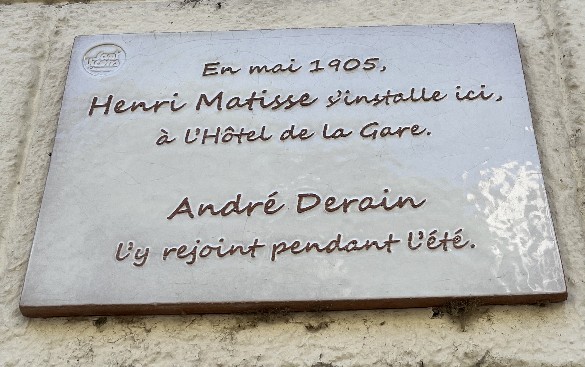 En mai 1905,
Henri Matisse s'installe ici,
à l'Hôtel de la Gare.
André Derain
l'y rejoint pendant l'été.